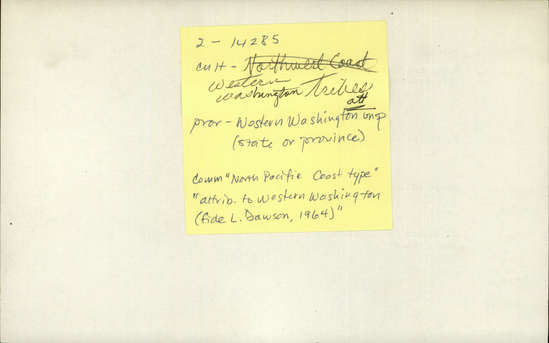 2 - 14285
cult - Northwest Coast
Western
Washington Tribes
att
prov - Western Washington unsp
(state or province)
Comm "North Pacific Coast type"
"attrib. to Western Washington
(fide L. Dawson, 1964)"